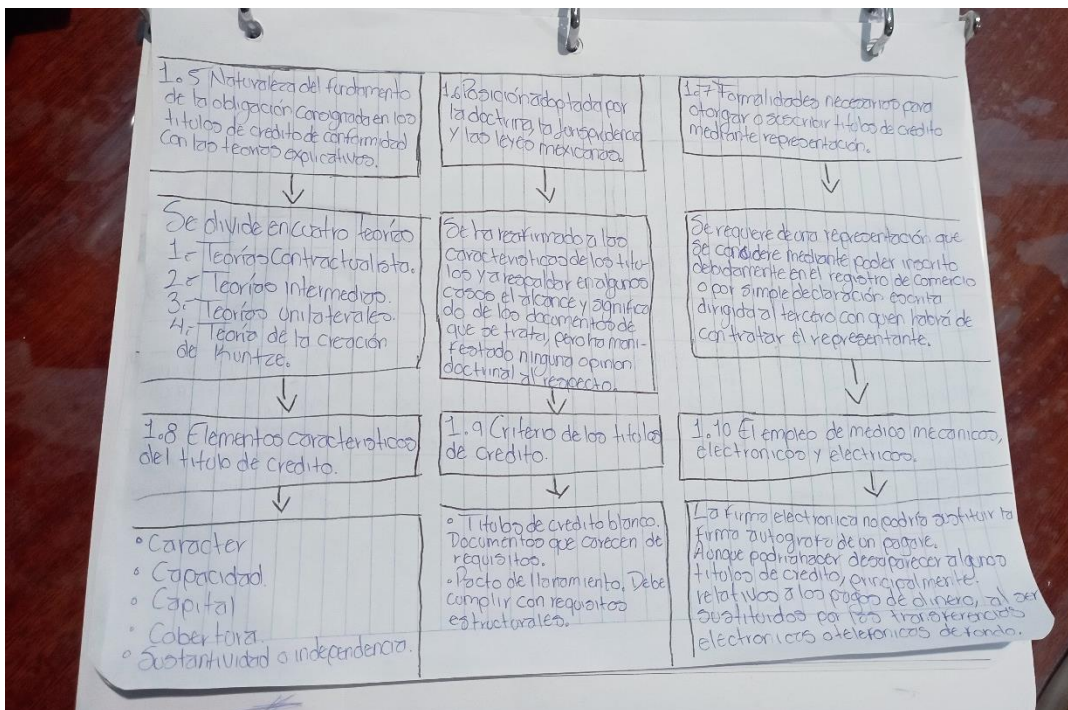 1.5 Naturaleza del fundamento
de la obligación consignada en los
titulos de credito de conformidad
con las teorias explicativas.
Se divide en cuatro teorías
1.- Teorías Contractualista.
2.- Teorías intermedias.
3.- Teorías Unilaterales.
4.- Teoría de la creación
de Kuntze.
1.8 Elementos caracteristicos
del titulo de credito.
• Caracter
• Capacidad.
• Capital
• Cobertura.
• Sustantividad o independencia.
1.6 Posición adoptada por
la doctrina, la Jurisprudencia
y las leyes mexicanas.
Se ha reafirmado a las
caracteristicas de los titu-
los y a respaldar en algunos
casos el alcance y significa
do de los documentos de
que se trata, pero ha mani-
festado ninguna opinion
doctrinal al respecto.
1.9 Criterio de los titulos
de credito.
• Titulos de credito blanco.
Documentos que carecen de
requisitos.
• Pacto de llenamiento. Debe
cumplir con requisitos
estructurales.
1.7 Formalidades necesarias para
otorgar o suscribir titulos de crédito
mediante representación.
Se requiere de una representación que
se considere mediante poder inscrito
debidamente en el registro de comercio
o por simple declaración escrita
dirigida al tercero con quen habrá de
contratar el representante.
1.10 El empleo de medios mecanicos,
electronicos y electricos.
La firma electronica no podría sustituir la
firma autografa de un pagare.
Aunque podrian hacer desaparecer algunos
titulos de credito, principalmente.
relativos a los pagos de dinero, al ser
sustituidos por las transferencias
electronicas o telefonicas de fondo.